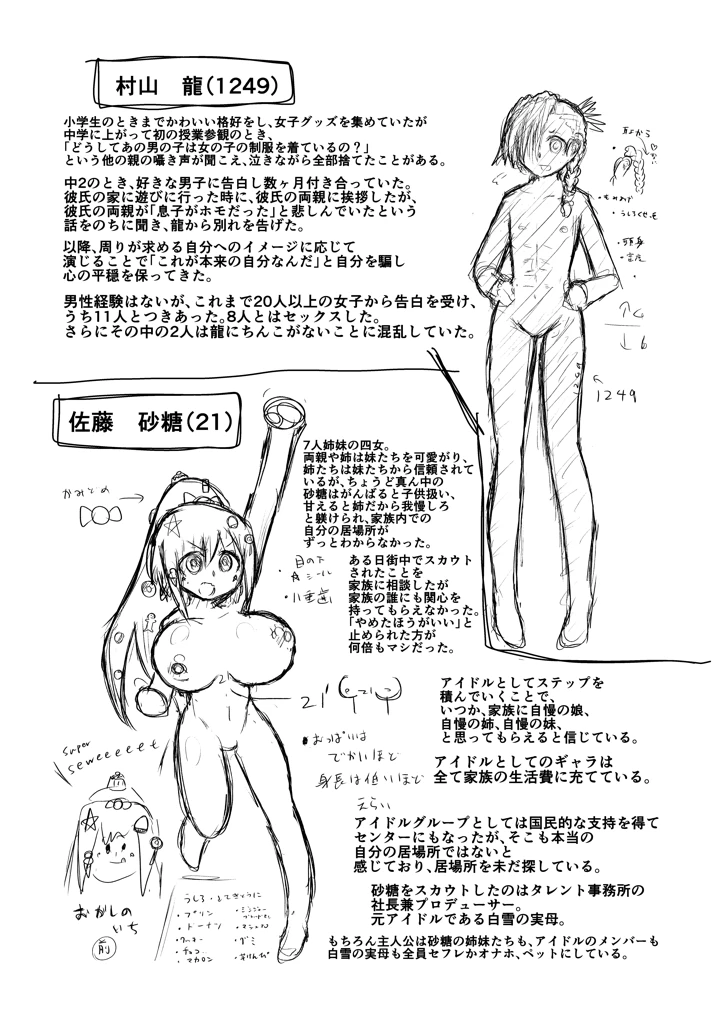 村山 龍(1249)
小学生のときまでかわいい格好をし、女子グッズを集めていたが
中学に上がって初の授業参観のとき、
「どうしてあの男の子は女の子の制服を着ているの?」
という他の親の囁き声が聞こえ、泣きながら全部捨てたことがある。
中2のとき、好きな男子に告白し数ヶ月付き合っていた。
彼氏の家に遊びに行った時に、彼氏の両親に挨拶したが、
彼氏の両親が「息子がホモだった」と悲しんでいたという
話をのちに聞き、龍から別れを告げた。
以降、周りが求める自分へのイメージに応じて
演じることで「これが本来の自分なんだ」と自分を騙し
心の平穏を保ってきた。
男性経験はないが、これまで20人以上の女子から告白を受け、
うち11人とつきあった。8人とはセックスした。
さらにその中の2人は龍にちんこがないことに混乱していた。
耳から
・頭身
1249
1249
佐藤 砂糖(21)
7人姉妹の四女。
両親や姉は妹たちを可愛がり、
姉たちは妹たちから信頼されて
いるが、ちょうど真ん中の
砂糖はがんばると子供扱い、
甘えると姉だから我慢しろ
と躾けられ、家族内での
自分の居場所が
ずっとわからなかった。
ある日街中でスカウト
されたことを
家族に相談したが
家族の誰にも関心を
持ってもらえなかった。
「やめたほうがいい」と
止められた方が
何倍もマシだった。
かみどめ
目の下
21
21'
・おっぱいは
でかいほど
身長は低いほど
えらい
アイドルとしてステップを
積んでいくことで、
いつか、家族に自慢の娘、
自慢の姉、自慢の妹、
と思ってもらえると信じている。
アイドルとしてのギャラは
全て家族の生活費に充てている。
アイドルグループとしては国民的な支持を得て
センターにもなったが、そこも本当の
自分の居場所ではないと
感じており、居場所を未だ探している。
砂糖をスカウトしたのはタレント事務所の
社長兼プロデューサー。
元アイドルである白雪の実母。
もちろん主人公は砂糖の姉妹たちも、アイドルのメンバーも
白雪の実母も全員セフレかオナホ、ペットにしている。
super
seweeeeet
おかしの
いち
前
・プリン
・ドーナツ
・クッキー
・チョコ
・マカロン
・グミ